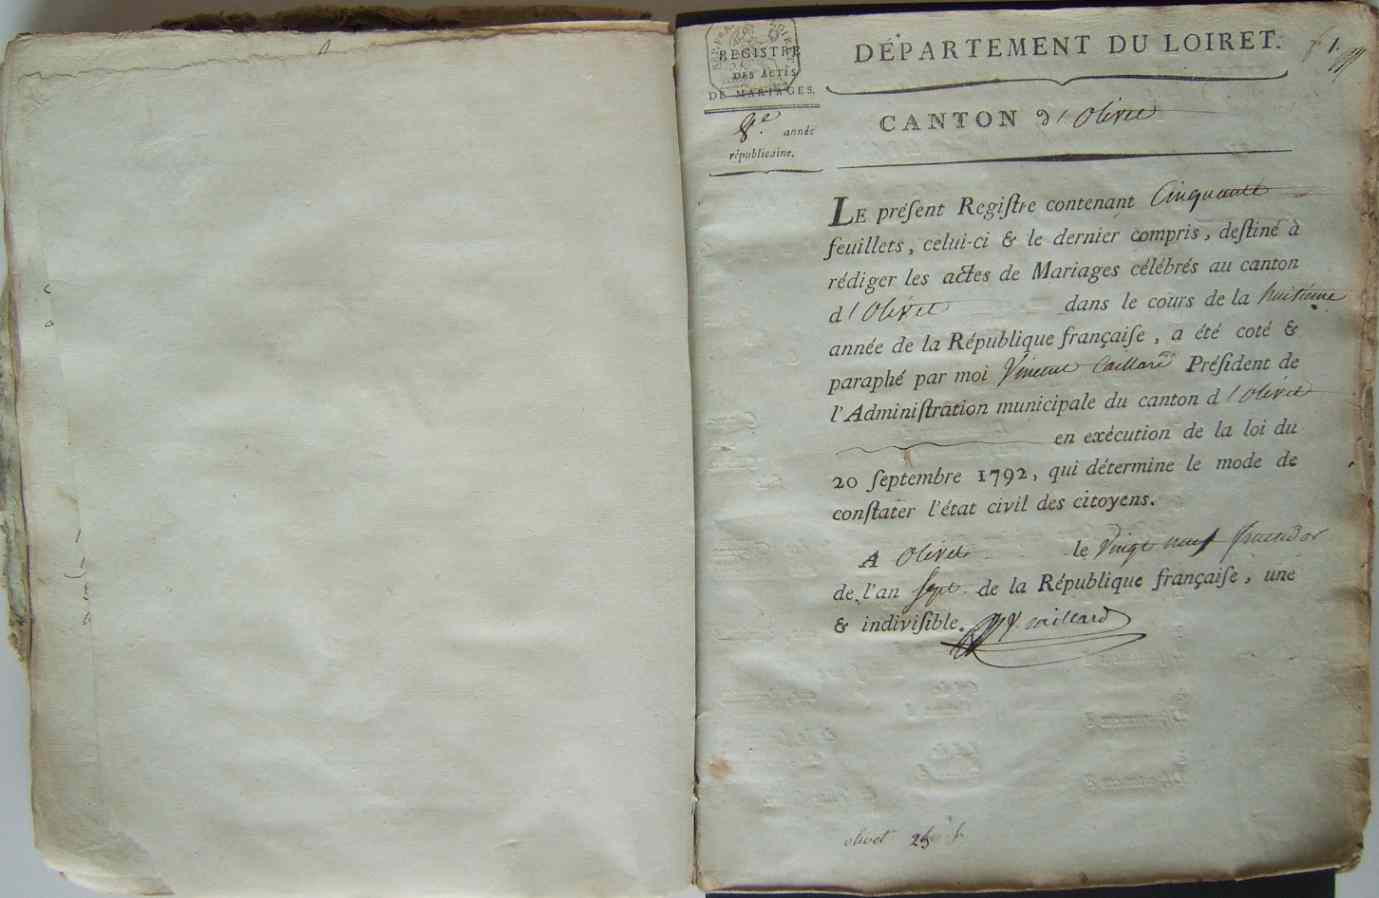 REGISTRE
DES ACTES
DE MARIAGES.
8.e année
républicaine.
DÉPARTEMENT DU LOIRET.
1.
CANTON d'Olivet
LE préſent Regiſtre contenant Cinquante
feuillets, celui-ci & le dernier compris, deſtiné à
rédiger les actes de Mariages célébrés au canton
d'Olivet dans le cours de la huitieme
année de la République françaiſe, a été coté &
paraphé par moi Vincent Caillard Préſident de
l'Adminiſtration municipale du canton d'Olivet
en exécution de la loi du
20 ſeptembre 1792, qui détermine le mode de
conſtater l'état civil des citoyens.
A Olivet le Vingt neuf fructidor
de l'an Sept de la République françaiſe, une
& indiviſible. V Caillard
olivet